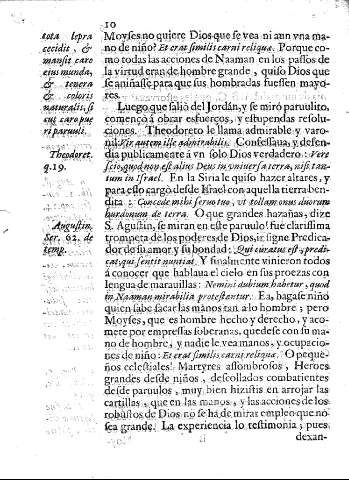 10
tota lepra
cecidit, &
mansit caro
ejus munda,
& tenera
& coloris
naturalis, si
cut caro pue
ri paruuli.
Theodoret.
q.19.
Augustin.
Ser. 62. de
temp.
Moyses no quiere Dios que se vea ni aun vna ma-
no de niño? Et erat similis carni reliquæ. Porque co-
mo todas las acciones de Naaman en los passos de
la virtud eran de hombre grande, quiso Dios que
se aniñasse para que sus honbradas fuessen mayo-
res.
Luego que saliò del Jordàn, y se mirò paruulito,
començò à obrar esfuerços, y estupendas resolu-
ciones. Theodoreto le llama admirable y varo-
nil. Vir autem ille admirabilis. Confessaua, y defen-
dia publicamente à vn solo Dios verdadero: Vere
scio, quod non est alius Deus in vniuersa terra, nisi tan-
tum in Israel. En la Siria le quiso hazer altares, y
para esto cargò desde Israel con aquella tierra ben-
dita: Concede mihi seruo tuo, vt tollam onus duorum
burdonum de terra. O que grandes hazañas, dize
S. Agustin, se miran en este paruulo! fue clarissima
trompeta de los poderes de Dios, insigne Predica-
dor de su amor y su bondad: Qui curatus est, prædi-
cat, qui sentit nuntiat. Y finalmente vinieron todos
à conocer que hablaua el cielo en sus proezas con
lengua de marauillas: Nemini dubium habetur, quod
in Naaman mirabilia protestantur. Ea, bagase niño
quien sabe sacar las manos tan a lo hombre; pero
Moyses, que es hombre hecho y derecho, y aco-
mete por empressas soberanas, quedese con su ma-
no de hombre, y nadie le vea manos, y ocupacio-
nes de niño: Et erat similis carni reliquæ. O peque-
ños celestiales! Martyres assombrosos, Heroes
grandes desde niños, descollados combatientes
desde paruulos, muy bien hizistis en arrojar las
cartillas, que en las manos, y las acciones de los
robustos de Dios no se ha de mirar empleo que no
sea grande. La experiencia lo testimonia; pues
dexan-